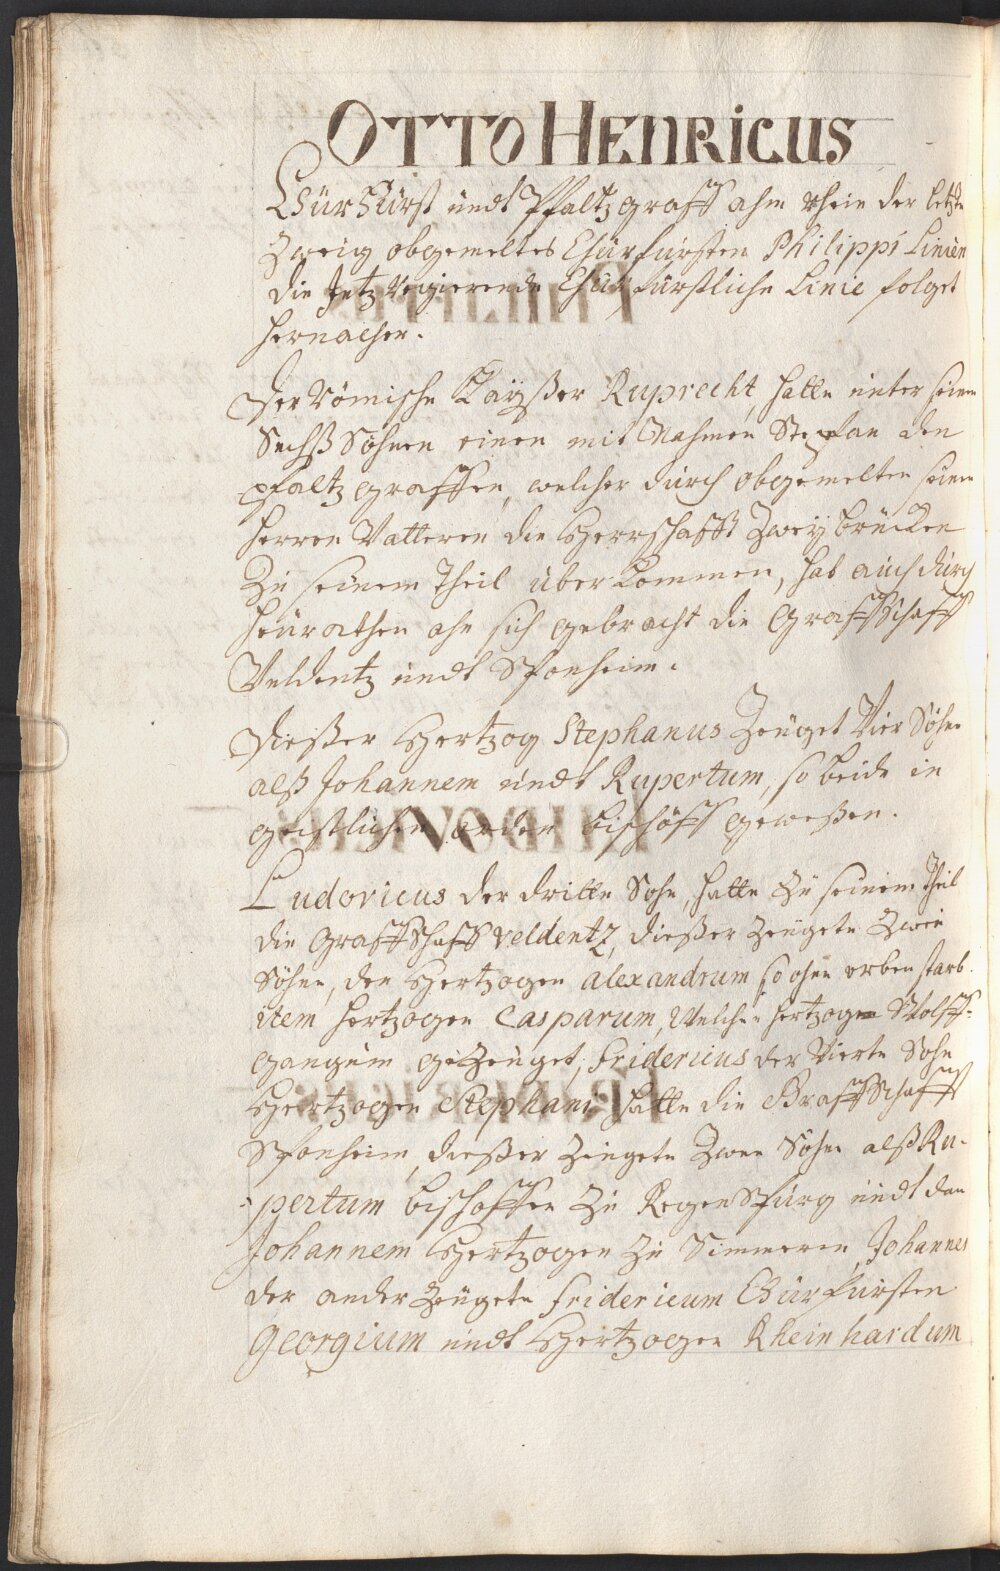 OTTO HENRICUS
Chür Fürst undt Pfaltz graff ahm Rhein der letzte
Zweig obgemeltes Chürfürsten Philippi Linien
die Jetz Regierende Chür fürstliche Linie folget
hernacher.
Der Römische Kayßer Ruprecht, hatte unter seinen
Sechß Söhnen einen mit Nahmen Stephan den
pfaltz graffen, welcher durch obgemelten seinen
Herren Vatteren die Herrschafft Zweybrücken
Zu seinem Theil überkommen, hat auch durch
heürathen ahn sich gebracht die Graffschafft
Veldentz undt Sponheim.
Dießer Hertzog Stephanus Zeüget Vier Söhne
alß Johannem undt Rupertum, so beide in
geistlichen orden bischöff geweßen.
Ludovicus der dritte Sohn, hatte Zu seinem Theil
die Graffschafft Veldentz, dießer Zeügete Zwen
Söhne, den Hertzogen Alexandrum so ohne erben starb.
item Hertzogen Casparum, Welcher Hertzogen Wolff-
gangum geZeüget, Fridericus der Vierte Sohn
Hertzogen Stephani, hatte die Graffschafft
Sponheim, dießer Zeugete Zwen Söhne alß Ru-
pertum bischoffen Zu Regenspurg undt den
Johannem Hertzogen Zu Simmeren, Johannes
der ander Zeügete Fridericum Chürfürsten
Georgium undt Hertzogen Rheinhardum